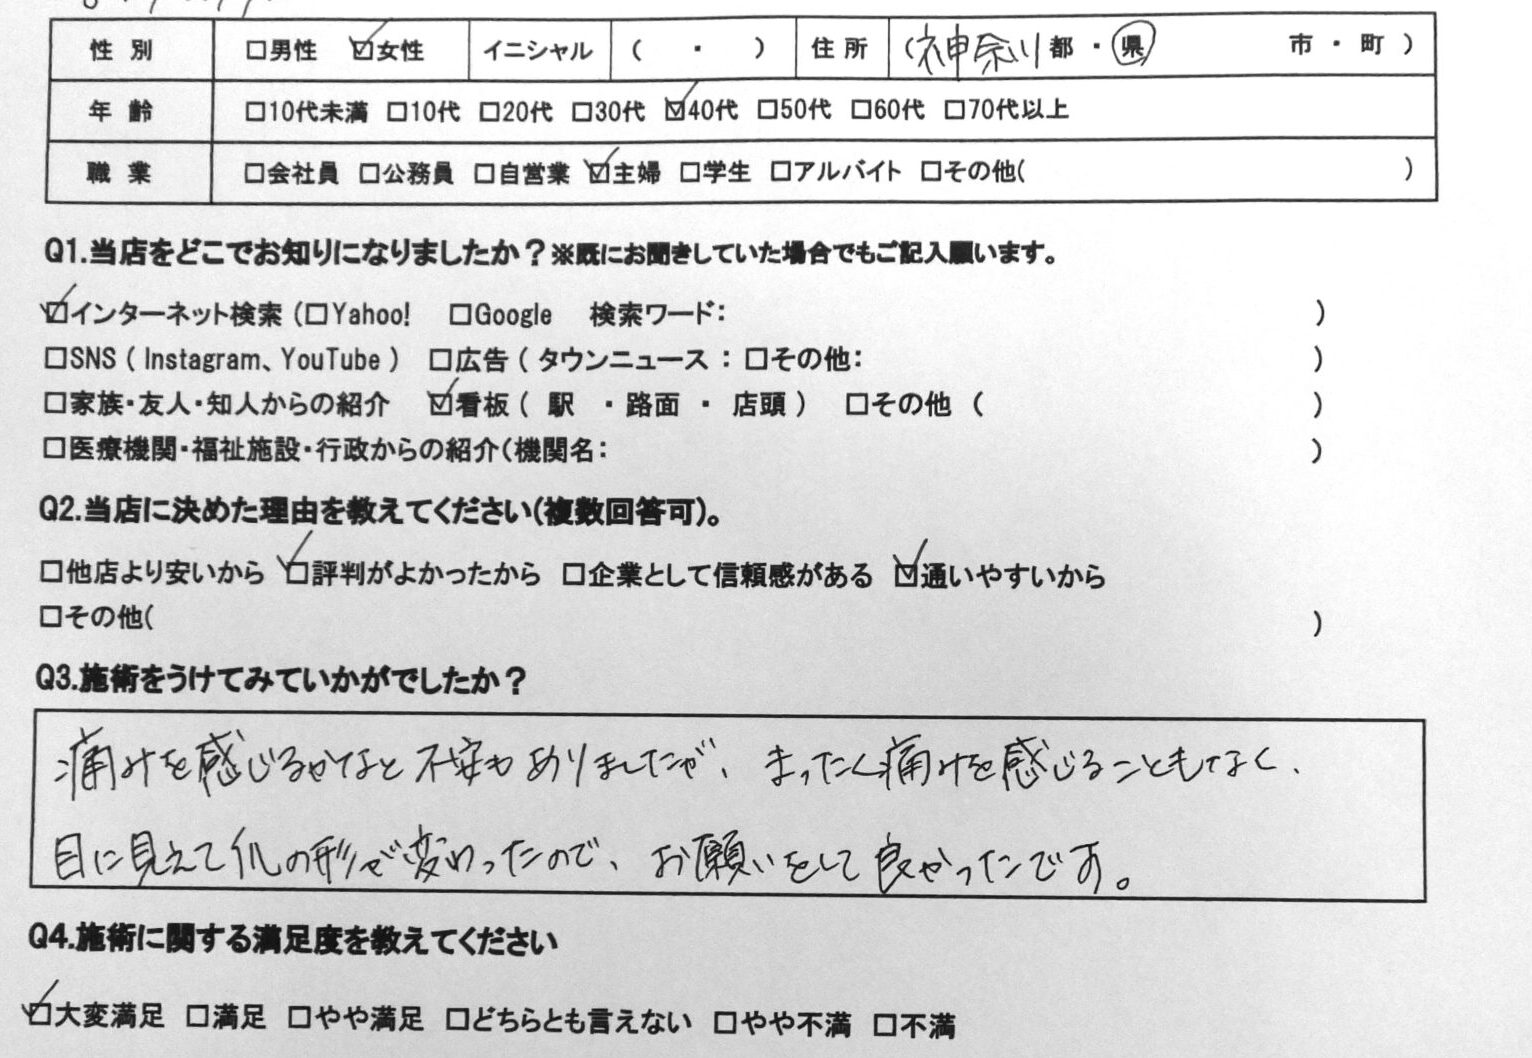 性 別 □男性 ☑女性 イニシャル ( ・ ) 住 所 (神奈川 都 ・ 県 市 ・ 町 )
年 齢 □10代未満 □10代 □20代 □30代 ☑40代 □50代 □60代 □70代以上
職 業 □会社員 □公務員 □自営業 ☑主婦 □学生 □アルバイト □その他( )
Q1.当店をどこでお知りになりましたか？※既にお聞きしていた場合でもご記入願います。
☑インターネット検索 (□Yahoo! □Google 検索ワード: )
□SNS ( Instagram、YouTube ) □広告 ( タウンニュース : □その他: )
□家族・友人・知人からの紹介 ☑看板 ( 駅 ・ 路面 ・ 店頭 ) □その他 ( )
□医療機関・福祉施設・行政からの紹介(機関名: )
Q2.当店に決めた理由を教えてください(複数回答可)。
□他店より安いから ☑評判がよかったから □企業として信頼感がある ☑通いやすいから
□その他( )
Q3.施術をうけてみていかがでしたか？
痛みを感じるかなと不安もありましたが、まったく痛みを感じることもなく、
目に見えて爪の形が変わったので、お願いをして良かったです。
Q4.施術に関する満足度を教えてください
☑大変満足 □満足 □やや満足 □どちらとも言えない □やや不満 □不満